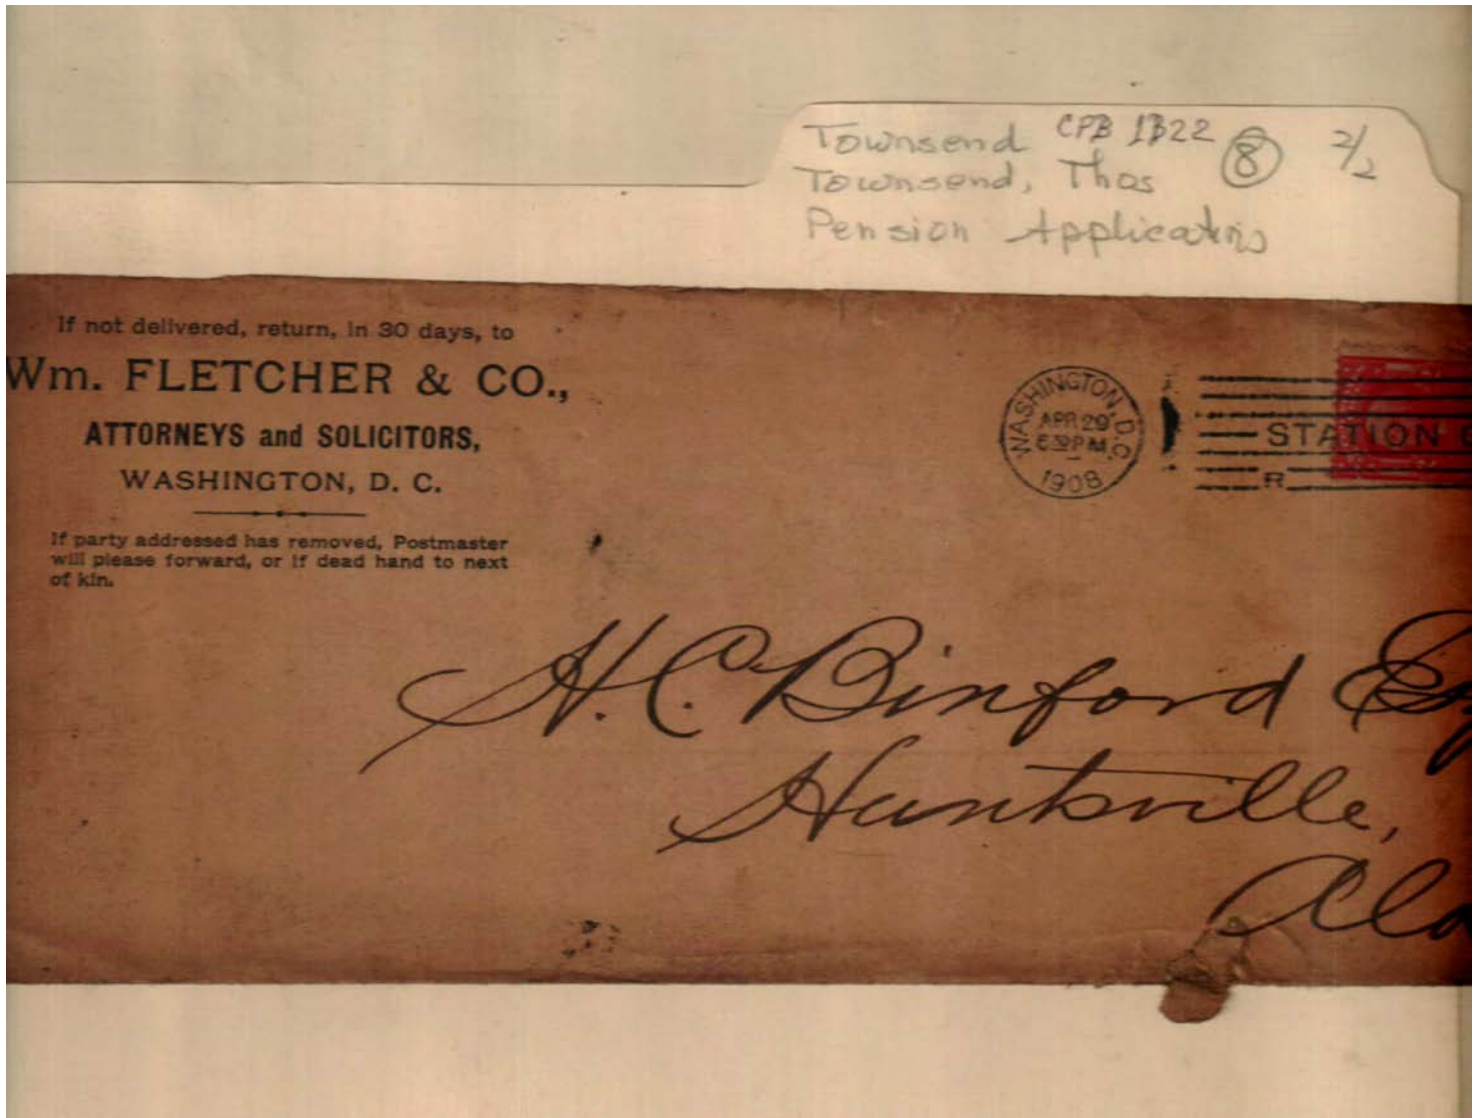 Townsend CPB 1B22 8 2/2
Townsend, Thos
Pension Applications
If not delivered, return, in 30 days, to
Wm. FLETCHER & CO.,
ATTORNEYS and SOLICITORS,
WASHINGTON, D. C.
If party addressed has removed, Postmaster
will please forward, or if dead hand to next
of kin.
WASHINGTON, D.C.
APR 29
630 PM
1908
STATION
R
H. C. Binford Esq
Huntsville,
Ala